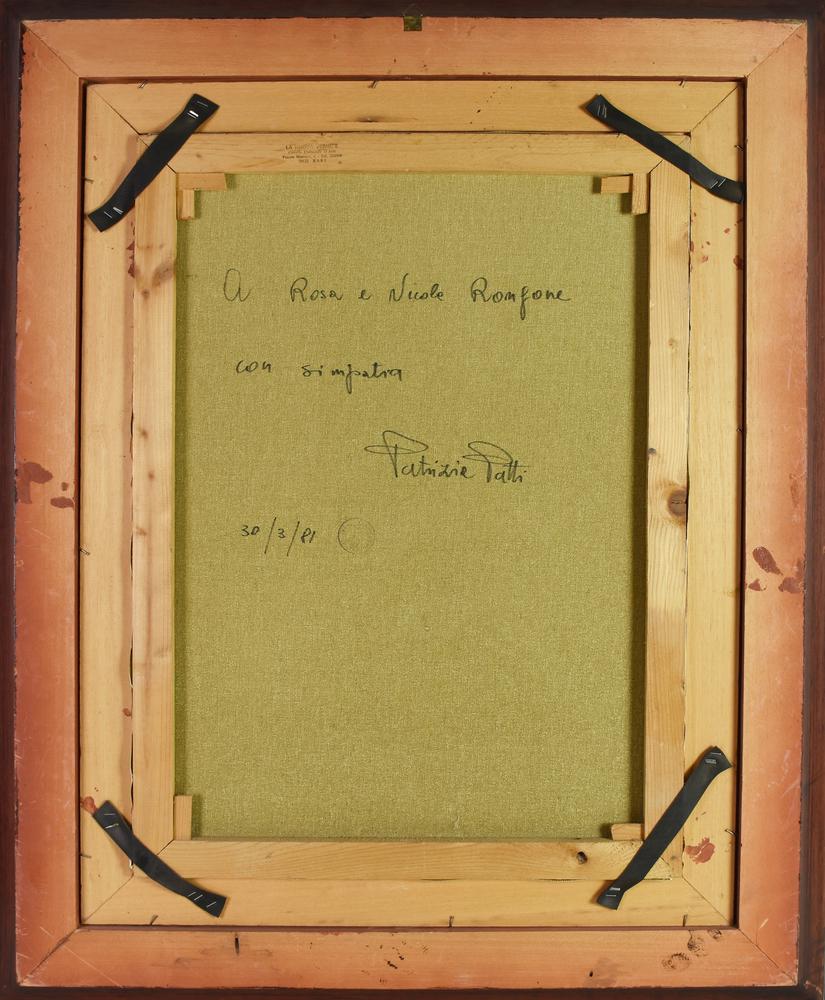 A Rosa e Nicola Ronfone
con simpatia
Patrizia Patti
30/3/81
BARI